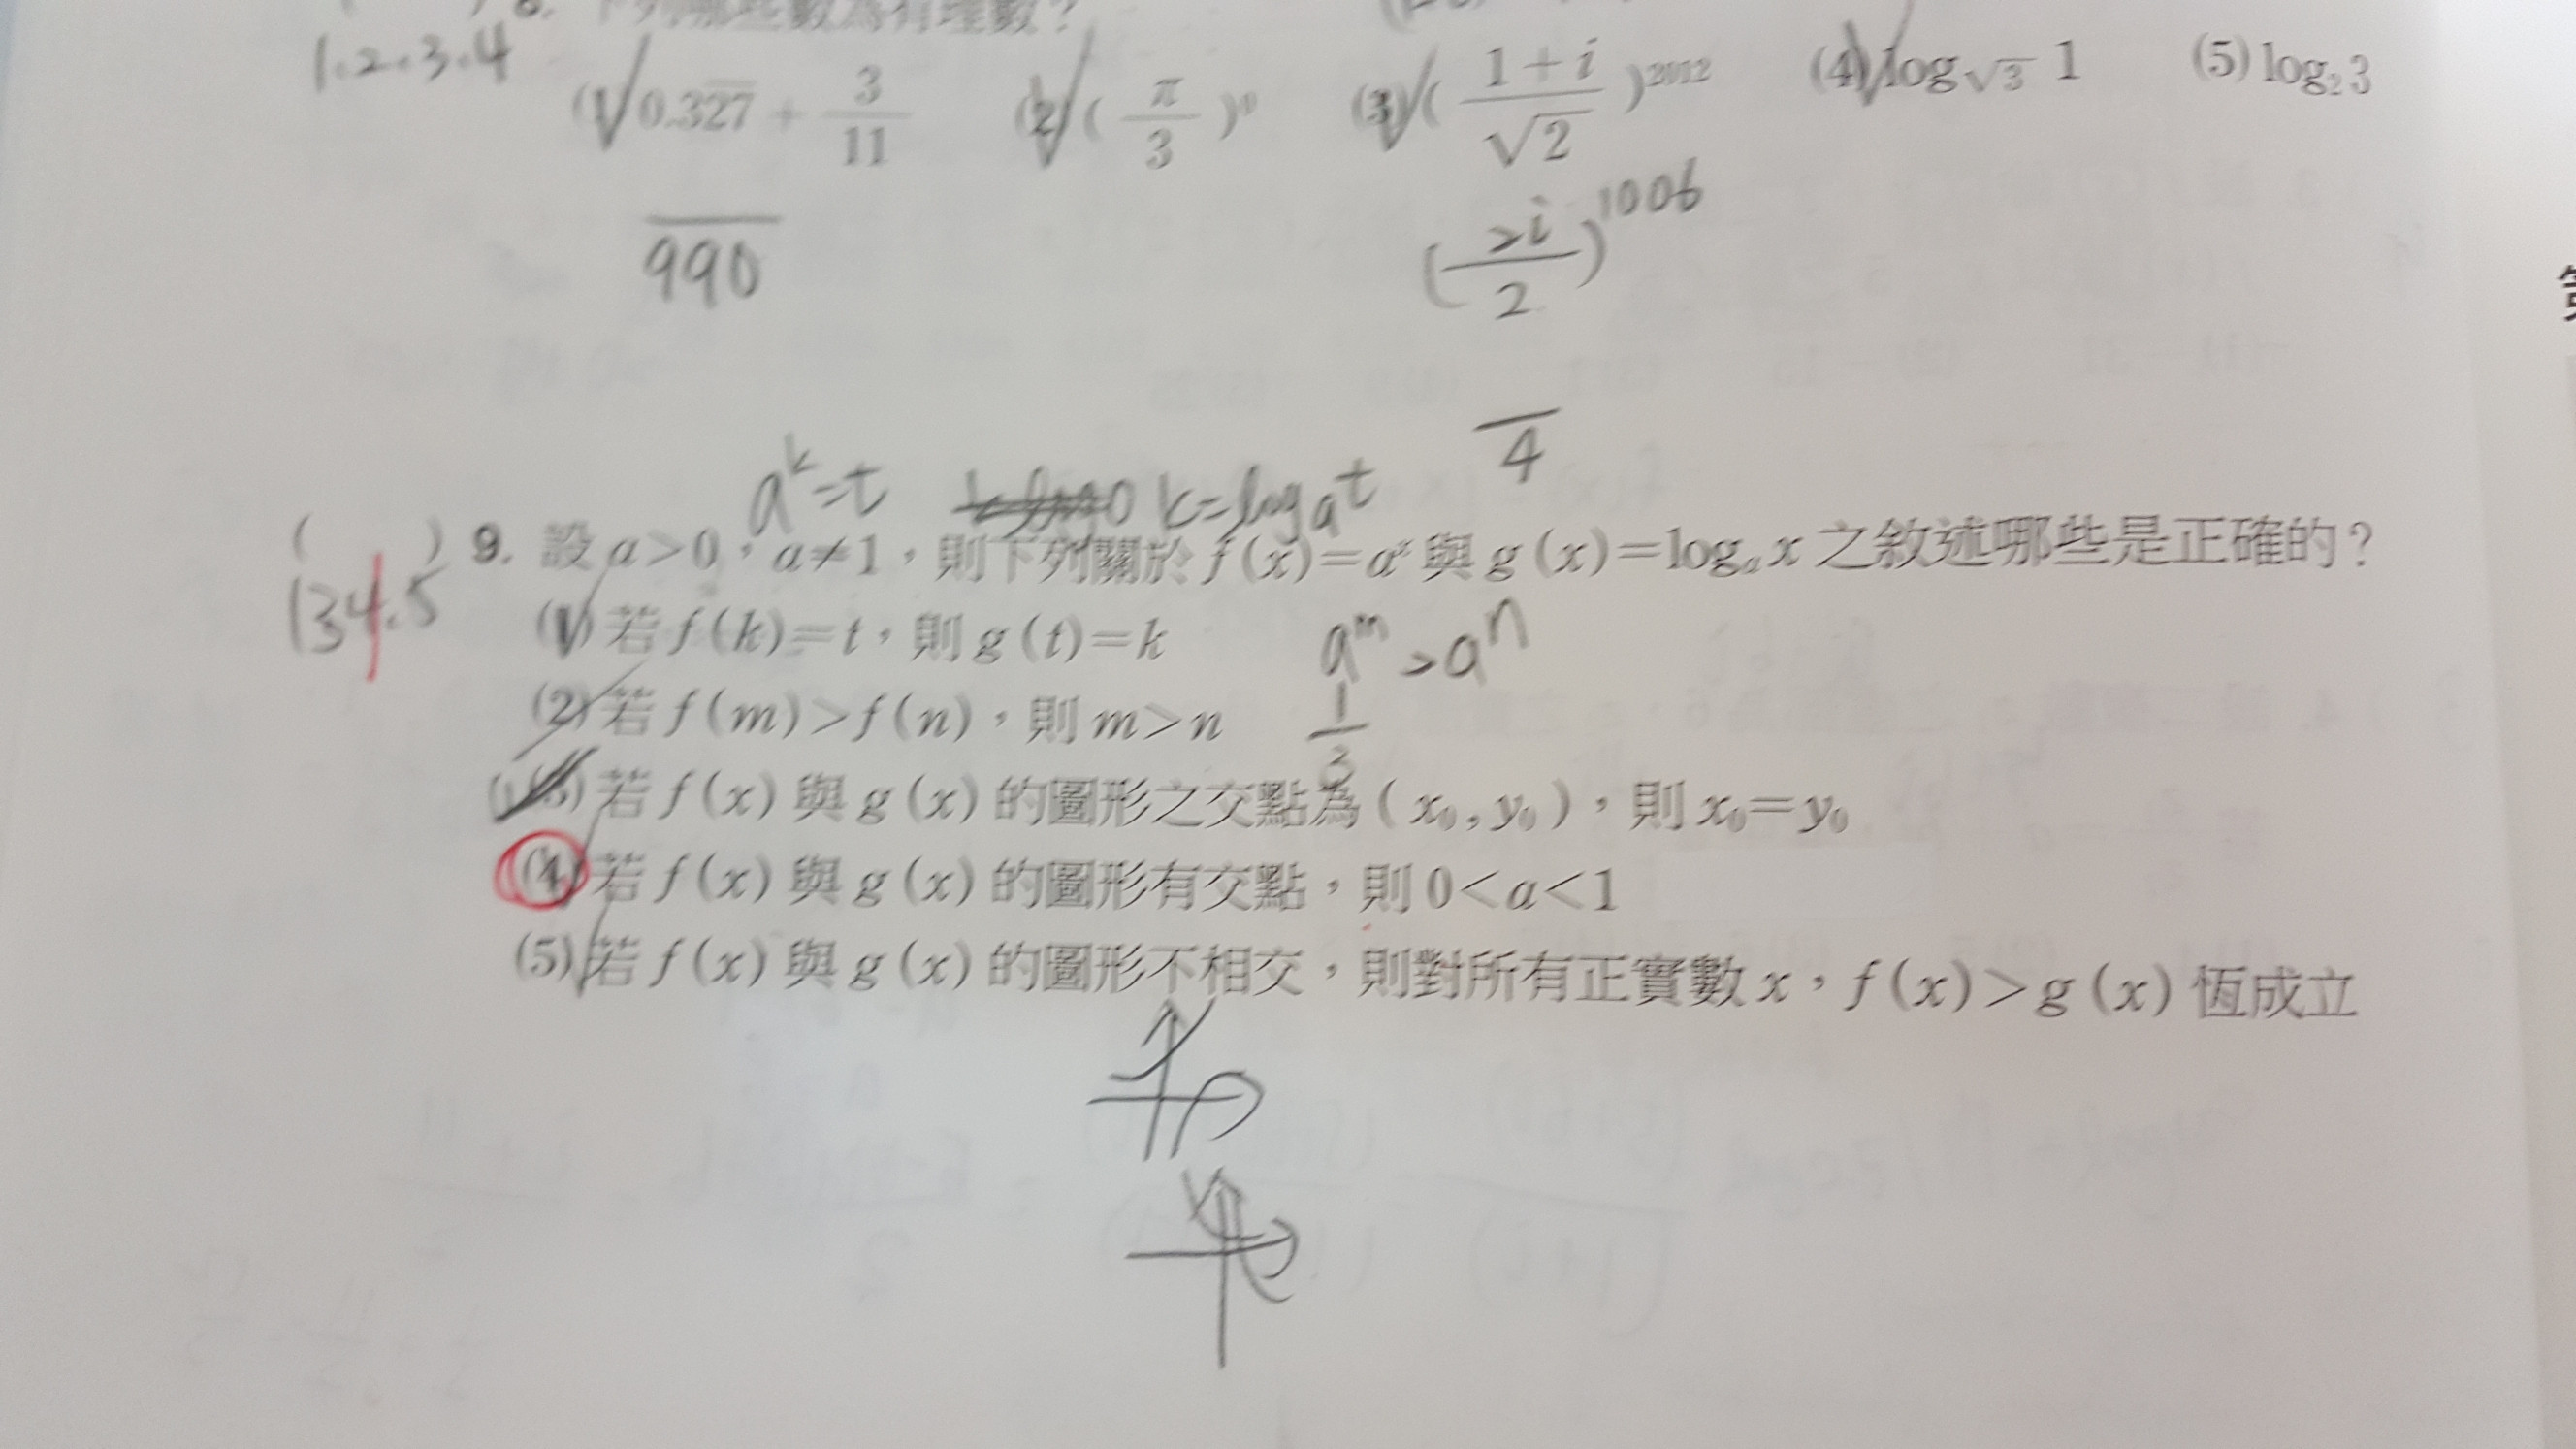 8. 下列哪些數為有理數？
1.2.3.4
(1) 0.327 + 3/11 (2) ( π/3 )⁰ (3) ( (1+i)/√2 )²⁰¹² (4) log√3 1 (5) log₂3
990
( 2i/2 )¹⁰⁰⁶
4
aᵏ=t k=logₐt
( ) 9. 設 a>0，a≠1，則下列關於 f(x)=aˣ 與 g(x)=logₐx 之敘述哪些是正確的？
134.5
(1) 若 f(k)=t，則 g(t)=k
aᵐ>aⁿ
(2) 若 f(m)>f(n)，則 m>n
1/3
(3) 若 f(x) 與 g(x) 的圖形之交點為 (x₀,y₀)，則 x₀=y₀
(4) 若 f(x) 與 g(x) 的圖形有交點，則 0<a<1
(5) 若 f(x) 與 g(x) 的圖形不相交，則對所有正實數 x，f(x)>g(x) 恆成立